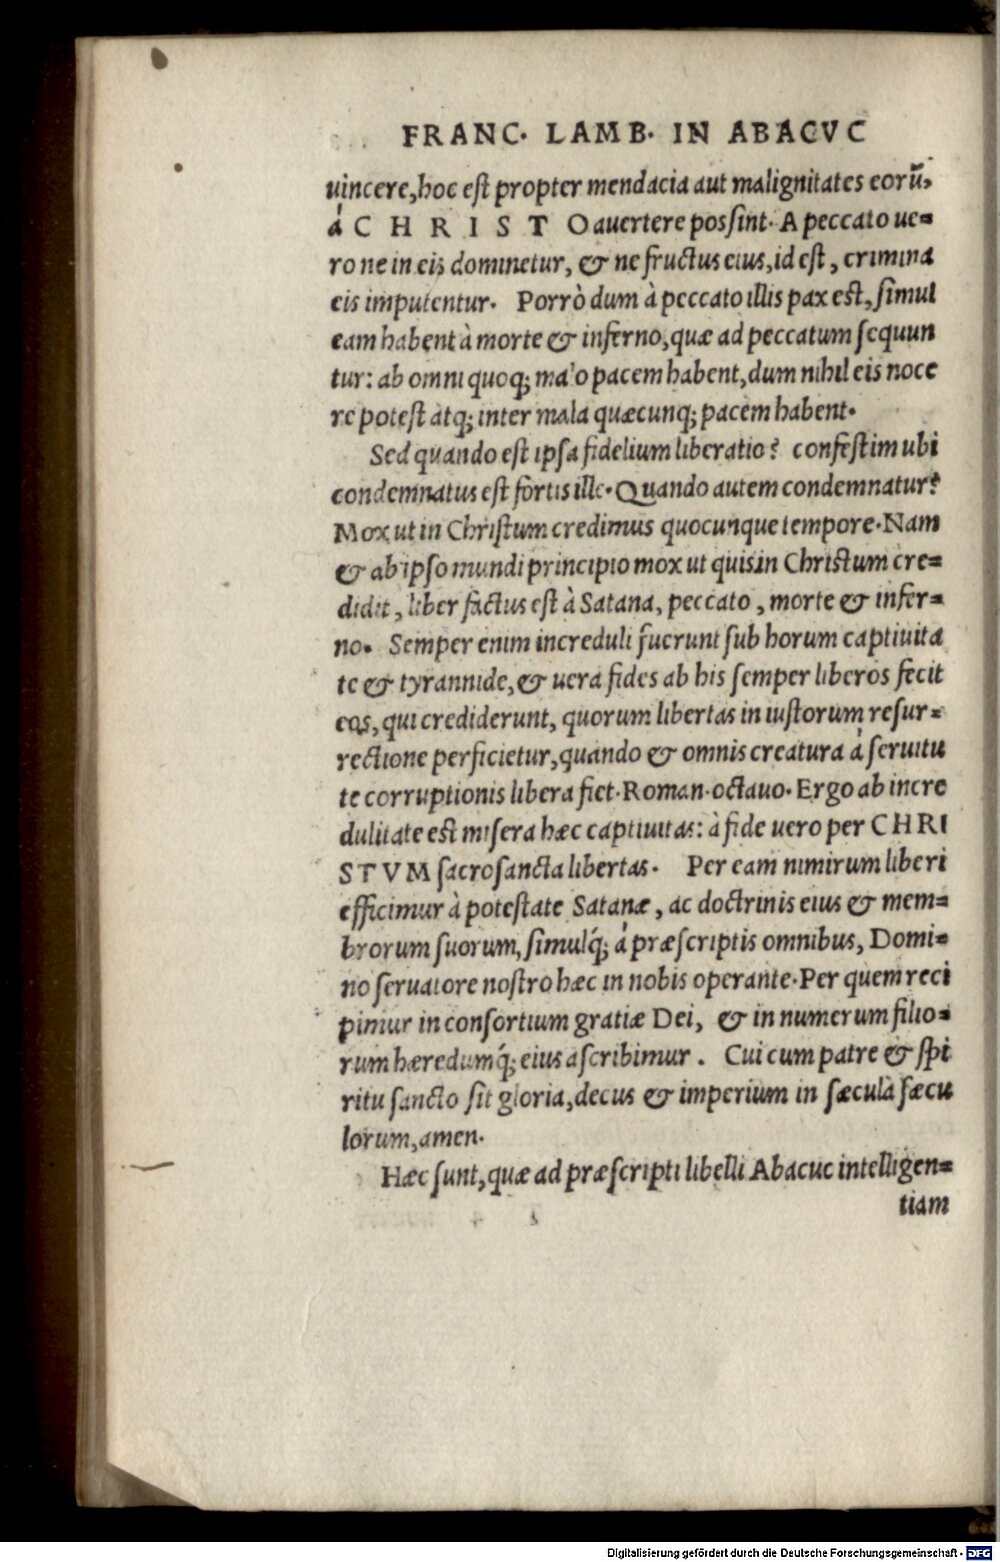 FRANC. LAMB. IN ABACVC
uincere, hoc est propter mendacia aut malignitates eorũ,
à CHRISTO auertere possint. A peccato ue=
ro ne in eis dominetur, & ne fructus eius, id est, crimina
eis imputentur. Porrò dum à peccato illis pax est, simul
eam habent à morte & inferno, quæ ad peccatum sequun
tur: ab omni quoq; malo pacem habent, dum nihil eis noce
re potest atq; inter mala quæcunq; pacem habent.
Sed quando est ipsa fidelium liberatio? confestim ubi
condemnatus est fortis ille. Quando autem condemnatur?
Mox ut in Christum credimus quocunque tempore. Nam
& ab ipso mundi principio mox ut quis in Christum cre=
didit, liber factus est à Satana, peccato, morte & infer=
no. Semper enim increduli fuerunt sub horum captiuita
te & tyrannide, & uera fides ab his semper liberos fecit
eos, qui crediderunt, quorum libertas in iustorum resur=
rectione perficietur, quando & omnis creatura à seruitu
te corruptionis libera fiet. Roman. octauo. Ergo ab incre
dulitate est misera hæc captiuitas: à fide uero per CHRI
STVM sacrosancta libertas. Per eam nimirum liberi
efficimur à potestate Satanæ, ac doctrinis eius & mem=
brorum suorum, simulq́; à præscriptis omnibus, Domi=
no seruatore nostro hæc in nobis operante. Per quem reci
pimur in consortium gratiæ Dei, & in numerum filio=
rum hæredumq́; eius ascribimur. Cui cum patre & spi
ritu sancto sit gloria, decus & imperium in sæcula sæcu
lorum, amen.
Hæc sunt, quæ ad præscripti libelli Abacuc intelligen=
tiam
Digitalisierung gefördert durch die Deutsche Forschungsgemeinschaft - DFG